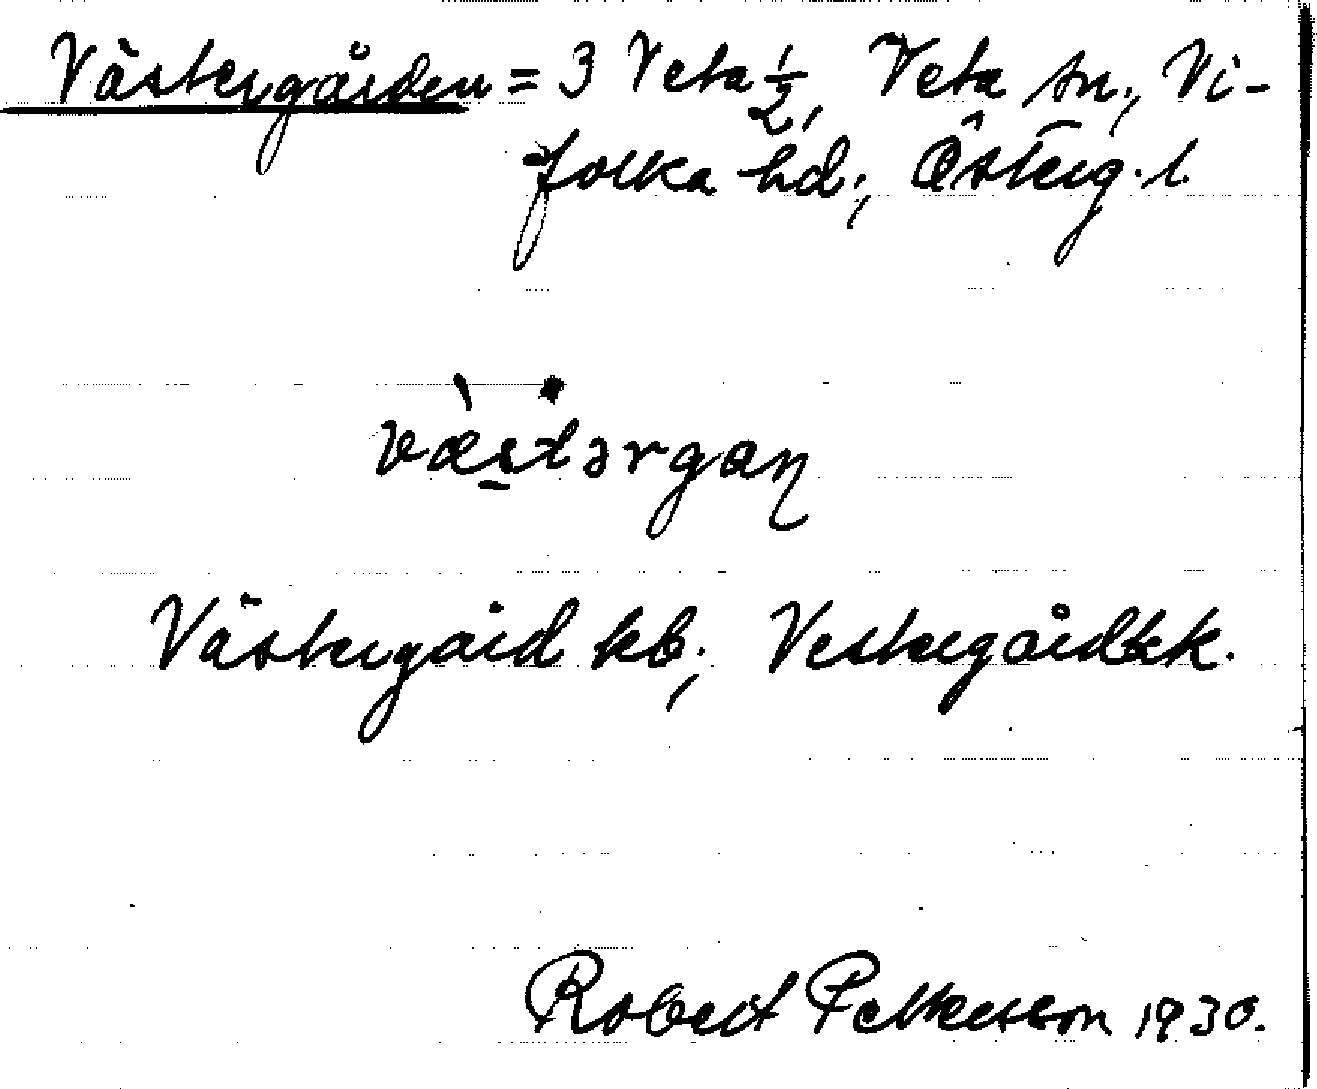 Västergården = 3 Veta ½, Veta sn., Vi-
folka hd., Österg. l.
væstərgaɳ
Västergård kb., Vestergård kk.
Robert Pettersson 1930.